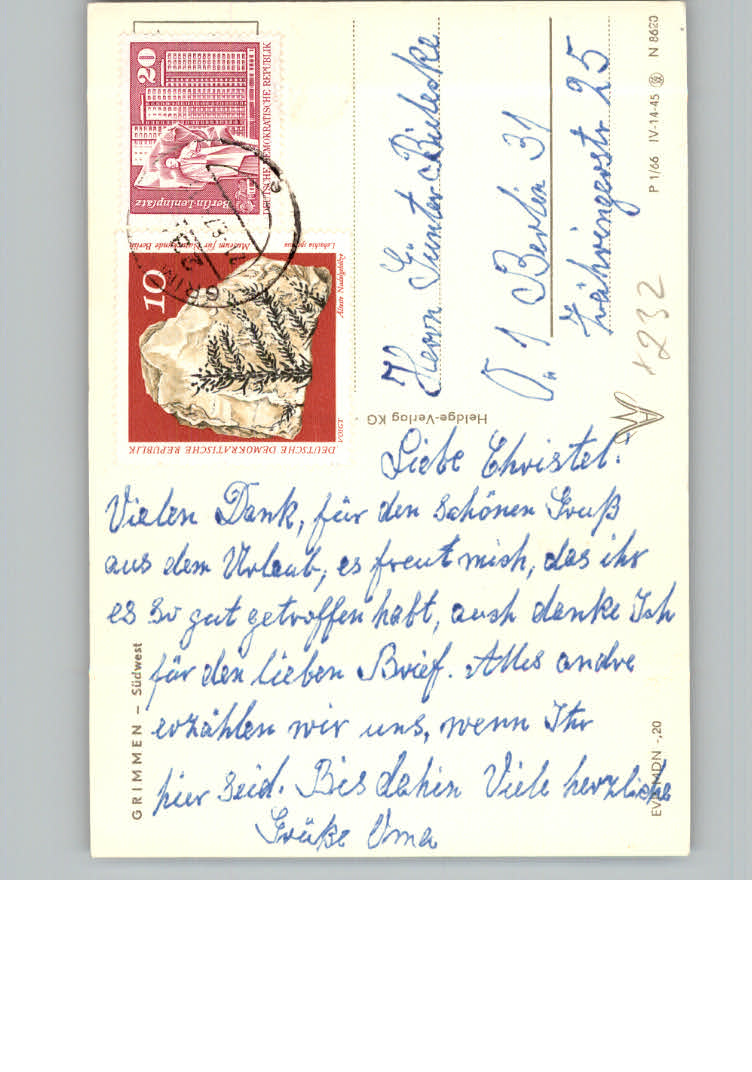 Liebe Christel!
Vielen Dank, für den schönen Gruß
aus dem Urlaub, es freut mich, das ihr
es so gut getroffen habt, auch danke Ich
für den lieben Brief. Alles andre
erzählen wir uns, wenn Ihr
hier seid. Bis dahin Viele herzliche
Grüße Oma
Herrn Günter
1 Berlin 31
Zähringerstr 25
+232
20
DEUTSCHE DEMOKRATISCHE REPUBLIK
Berlin-Leninplatz
10
Museum für Naturkunde Berlin
Lebachia speciosa
Älteste Nadelgehölze
VOIGT
DEUTSCHE DEMOKRATISCHE REPUBLIK
Heldge-Verlag KG
GRIMMEN – Südwest
EVP MDN -,20
P 1/66 IV-14-45 N 8620